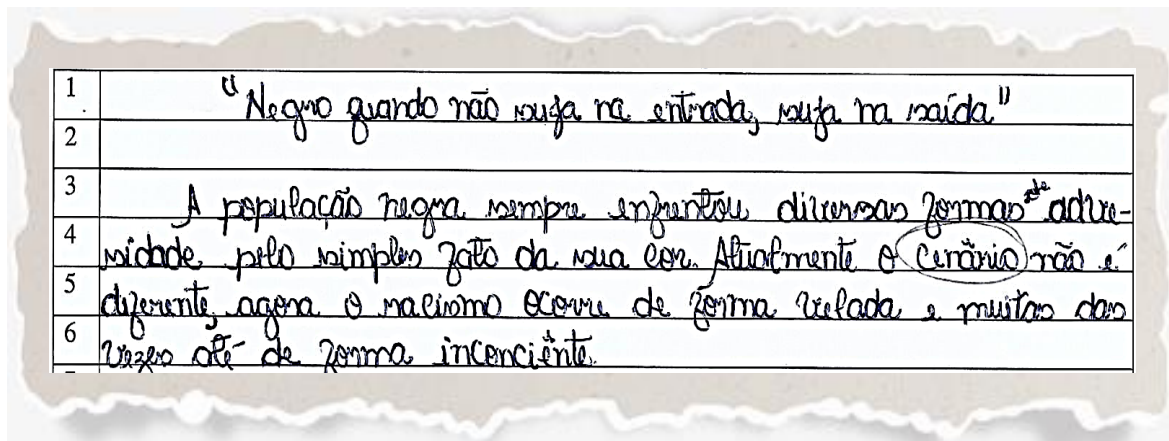 1 "Negro quando não suja na entrada, suja na saída"
2
3 A população negra sempre enfrentou diversas formas de adve-
4 sidade pelo simples fato da sua cor. Atualmente o cenãrio não é
5 diferente, agora o racismo ocorre de forma velada e muitas das
6 vezes até de forma inconciênte.